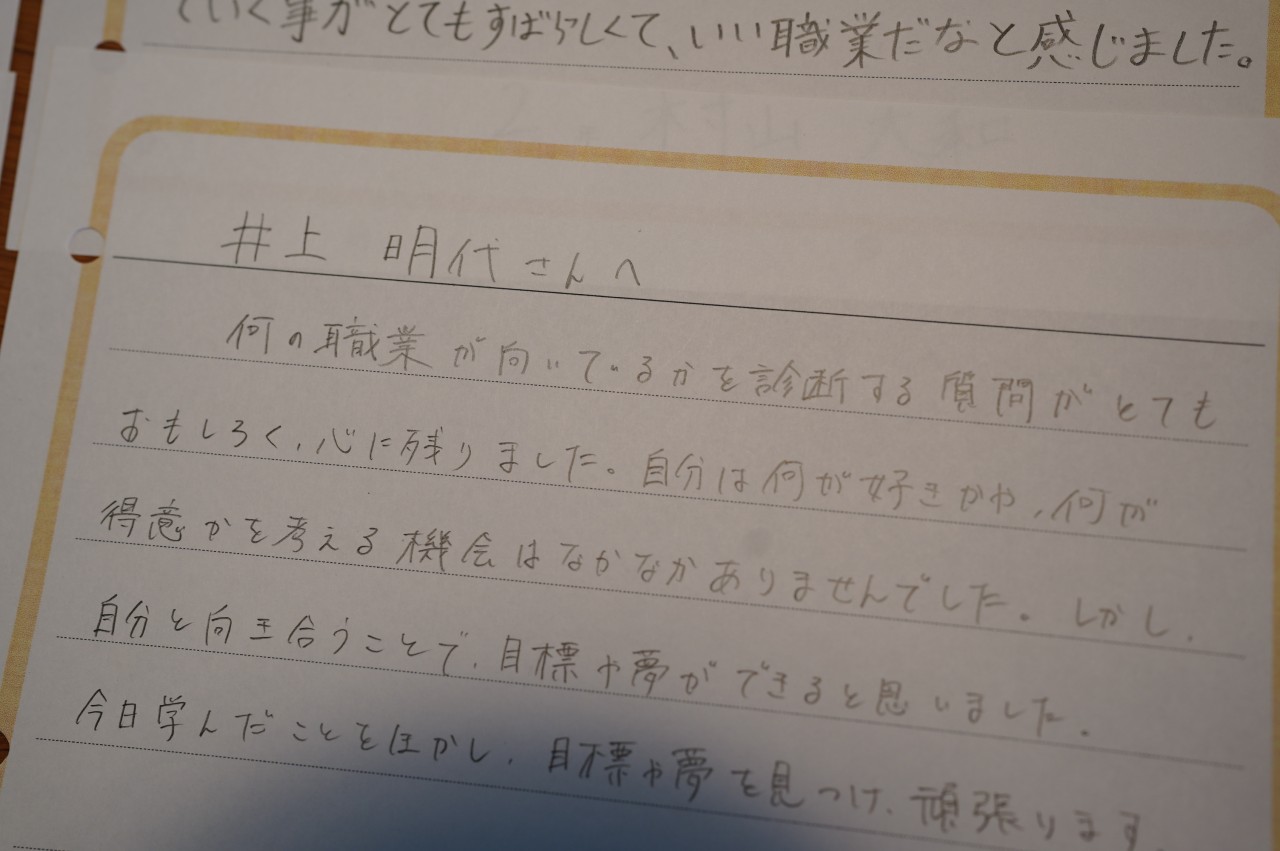 ていく事がとてもすばらしくて、いい職業だなと感じました。
井上 明代さんへ
何の職業が向いているかを診断する質問がとても
おもしろく、心に残りました。自分は何が好きかや、何が
得意かを考える機会はなかなかありませんでした。しかし、
自分と向き合うことで、目標や夢ができると思いました。
今日学んだことをほかし、目標や夢を見つけ、頑張ります。